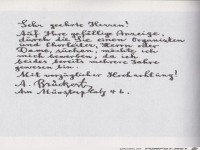 Sehr geehrte Herren!
Auf Ihre gefällige Anzeige,
durch die Sie einen Organisten
und Chorleiter, Herrn oder
Dame, suchen, möchte ich
mich bewerben, da ich
beides bereits mehrere Jahre
gewesen bin.
Mit vorzüglicher Hochachtung!
A. Brückert
Am Münsterplatz 4 b.